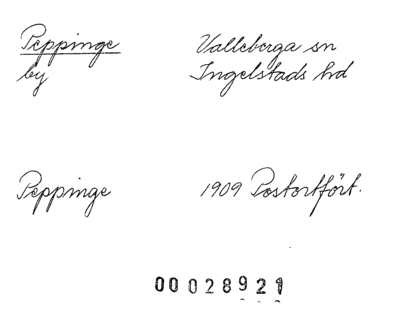 Peppinge Valleberga sn
by Ingelstads hd
Peppinge 1909 Postortfört.
00028921